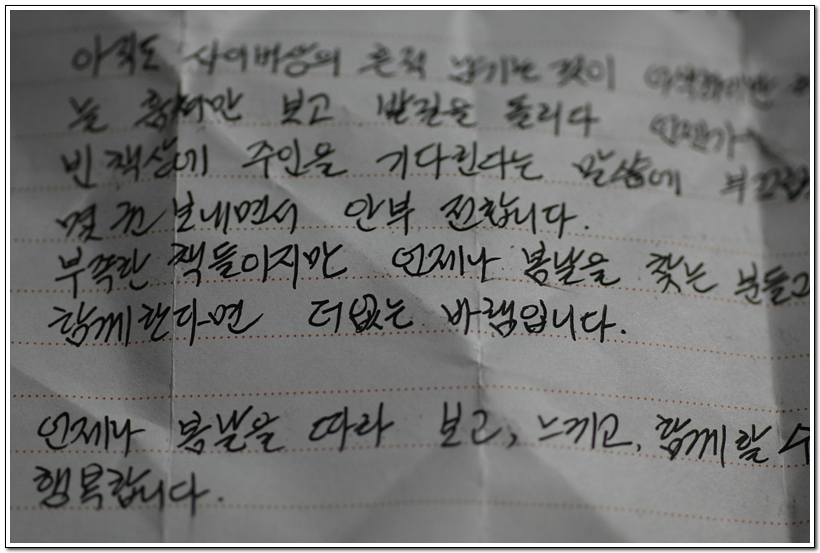 아직도 사이버상의 흔적 남기는 것이 어색하지만
늘 흔적만 보고 발길을 돌리다 언젠가
빈 책상에 주인을 기다린다는 말씀에
몇 권 보내면서 안부 전합니다.
부족한 책들이지만 언제나 봄날을 찾는 분들고
함께한다면 더없는 바램입니다.
언제나 봄날을 따라 보고, 느끼고, 함께 할 수
행복합니다.